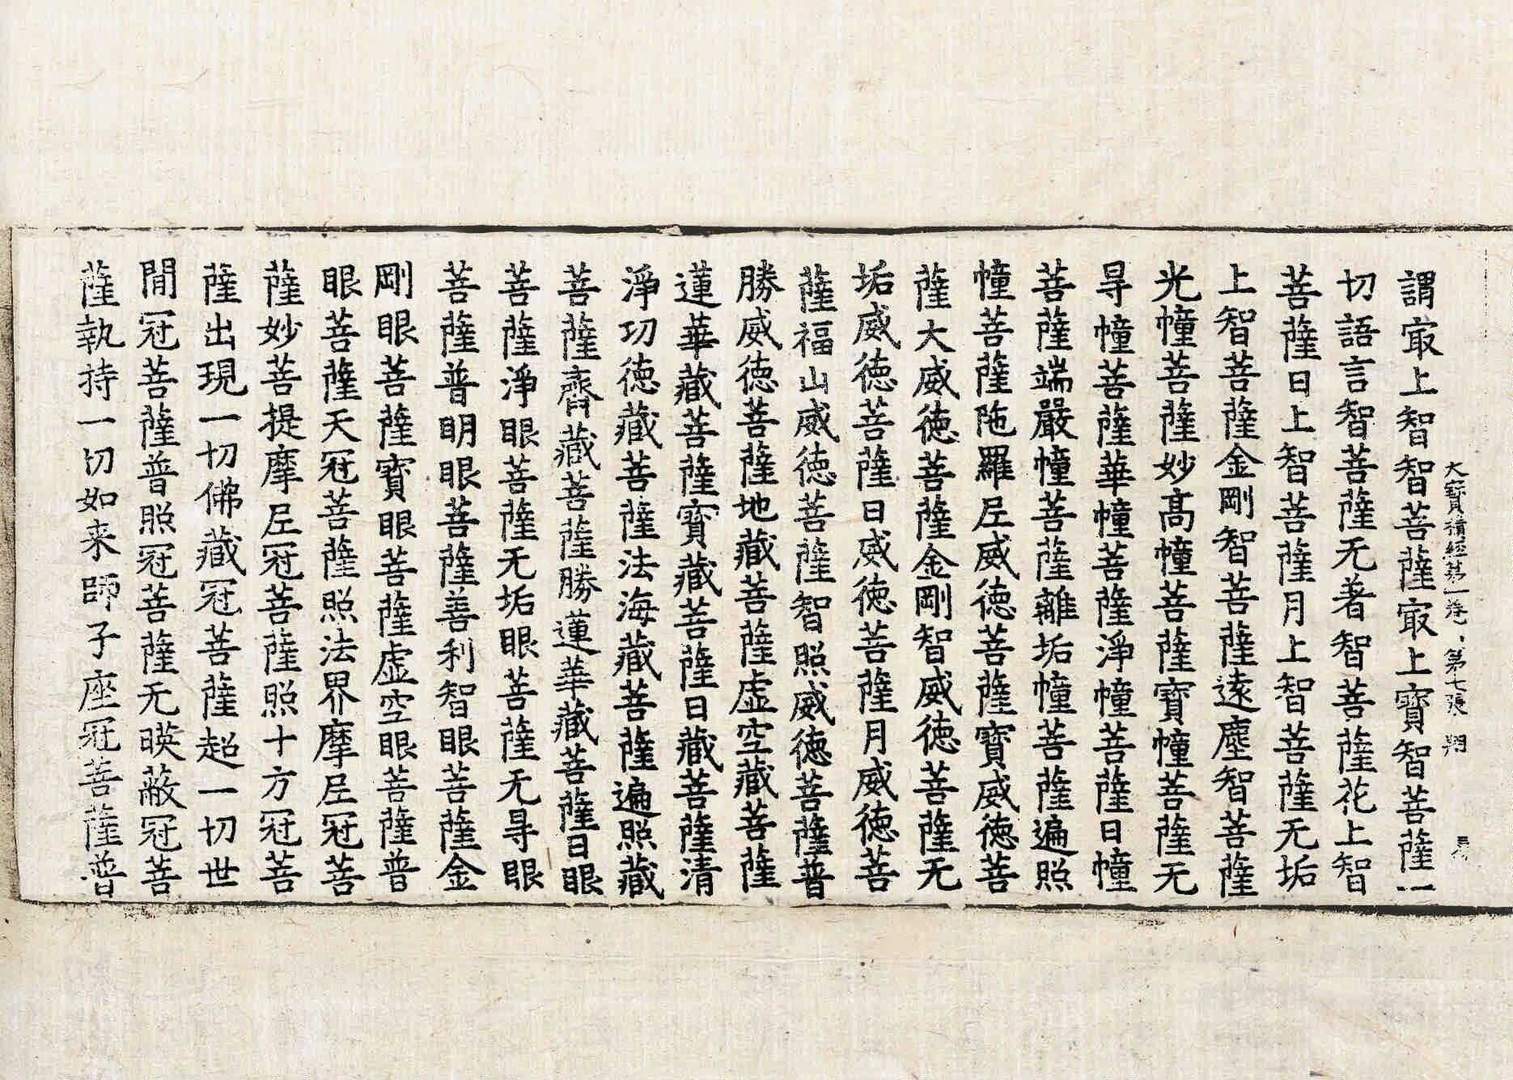 大寶積經第一卷 第七張 翔
謂㝡上智智菩薩㝡上寶智菩薩一
切語言智菩薩无著智菩薩花上智
菩薩日上智菩薩月上智菩薩无垢
上智菩薩金剛智菩薩遠塵智菩薩
光幢菩薩妙高幢菩薩寶幢菩薩无
㝵幢菩薩華幢菩薩淨幢菩薩日幢
菩薩端嚴幢菩薩離垢幢菩薩遍照
幢菩薩陁羅尼威徳菩薩寶威徳菩
薩大威徳菩薩金剛智威徳菩薩无
垢威徳菩薩日威徳菩薩月威徳菩
薩福山威徳菩薩智照威徳菩薩普
勝威徳菩薩地藏菩薩虛空藏菩薩
蓮華藏菩薩寶藏菩薩日藏菩薩清
淨功徳藏菩薩法海藏菩薩遍照藏
菩薩齊藏菩薩勝蓮華藏菩薩日眼
菩薩淨眼菩薩无垢眼菩薩无㝵眼
菩薩普明眼菩薩善利智眼菩薩金
剛眼菩薩寶眼菩薩虛空眼菩薩普
眼菩薩天冠菩薩照法界摩尼冠菩
薩妙菩提摩尼冠菩薩照十方冠菩
薩出現一切佛藏冠菩薩超一切世
閒冠菩薩普照冠菩薩无暎蔽冠菩
薩執持一切如来師子座冠菩薩普